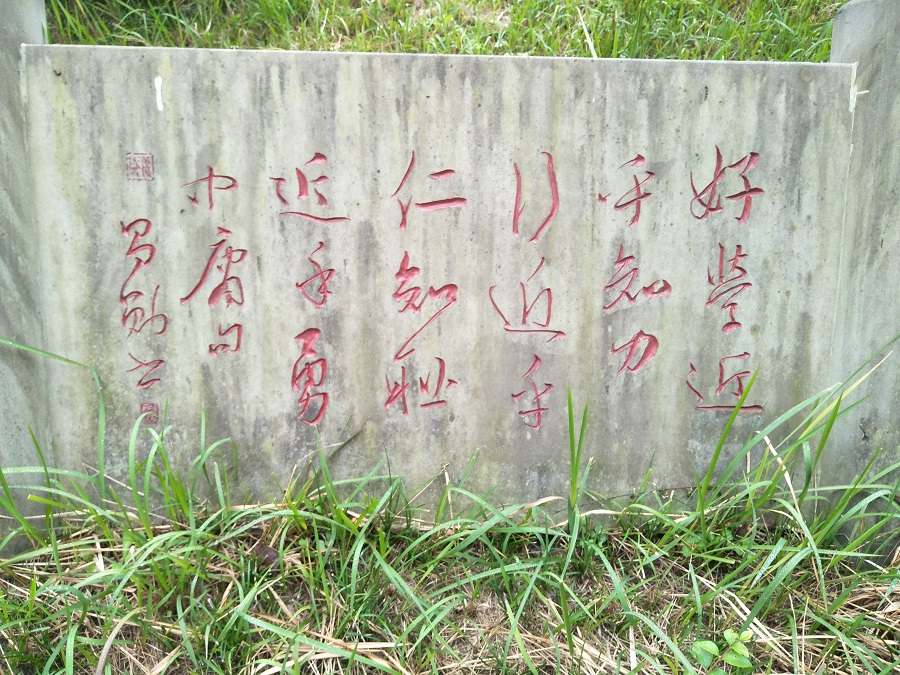 好學近
乎知力
行近乎
仁知耻
近乎勇
中庸句
书